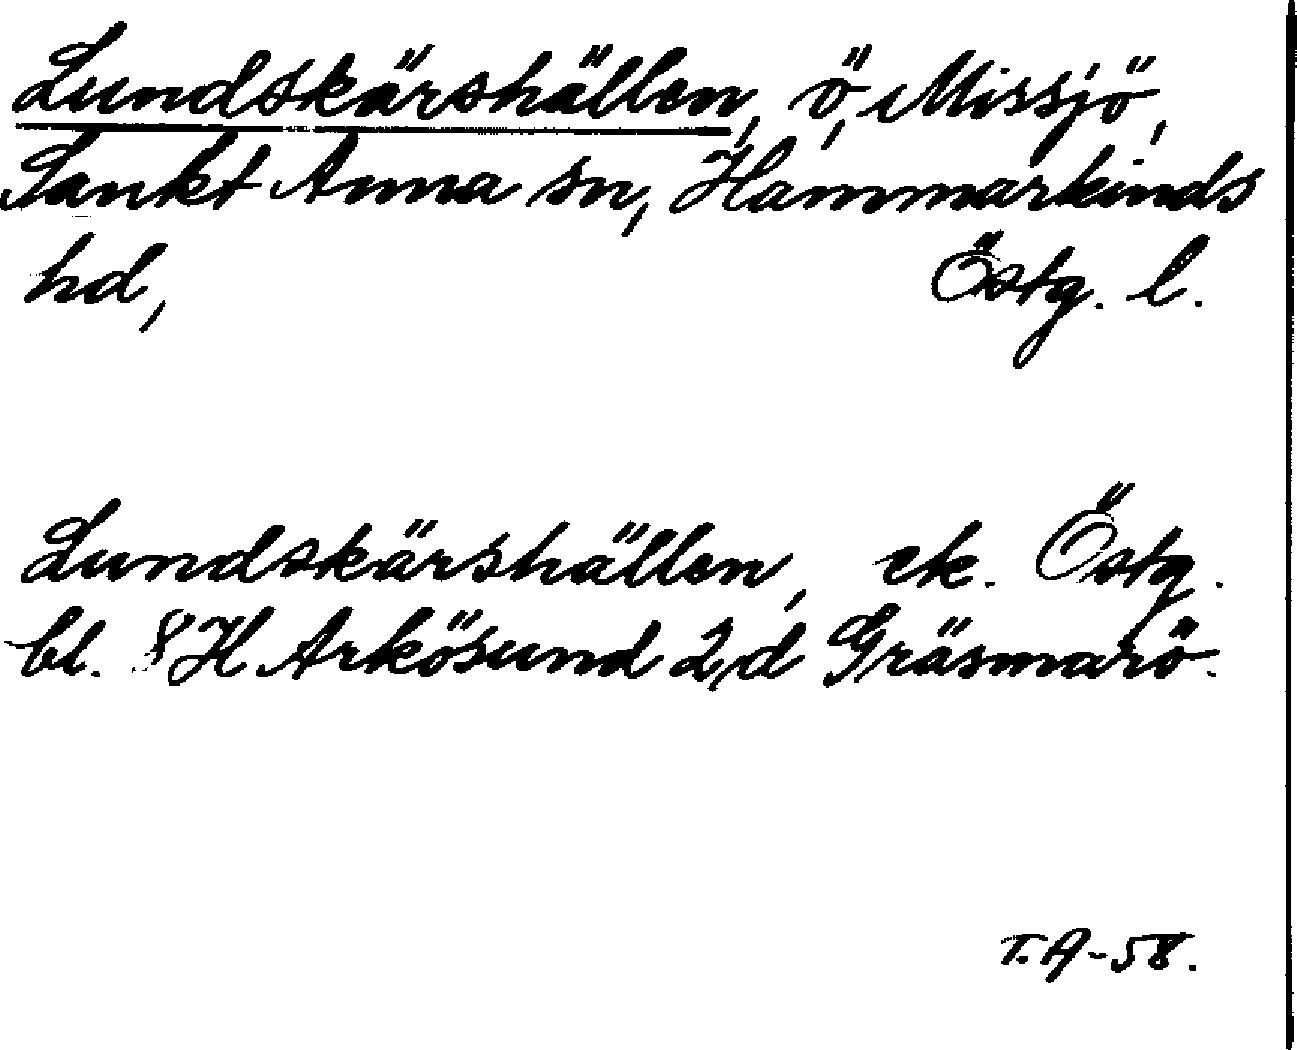 Lundskärshällen, ö, Missjö,
Sankt Anna sn, Hammarkinds
hd, Östg. l.
Lundskärshällen, ek. Östg.
bl. 8 H Arkösund 2, d Gräsmarö.
T.A-58.